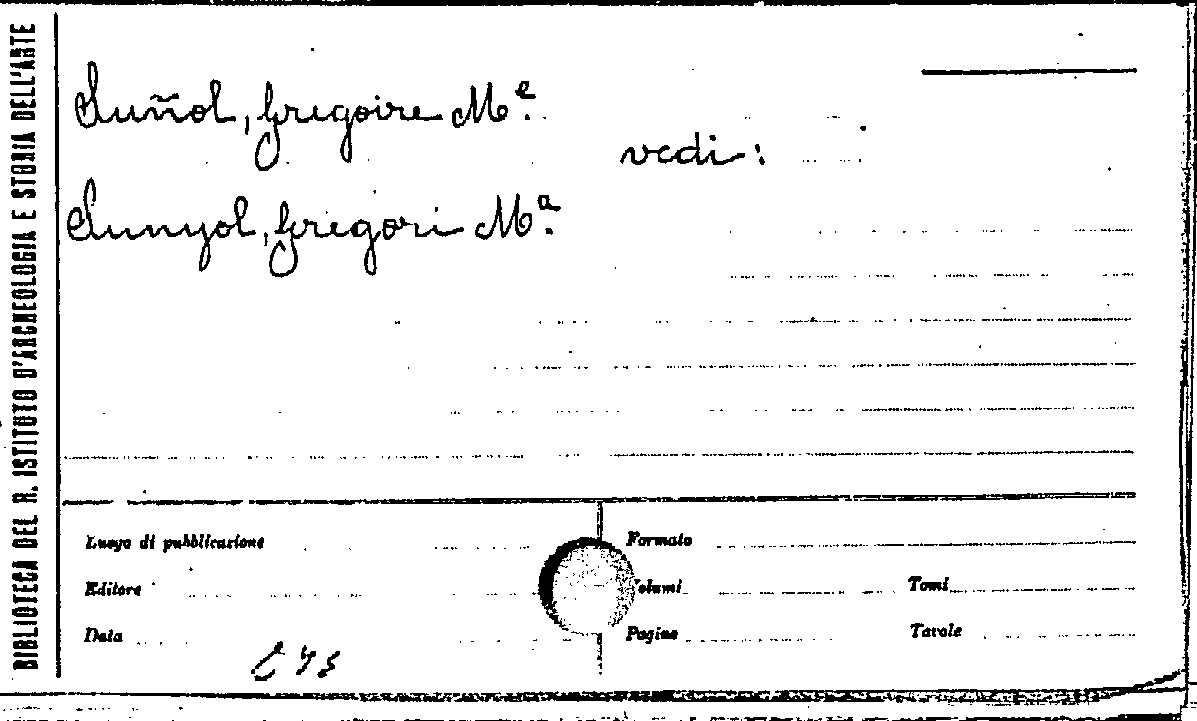 BIBLIOTECA DEL R. ISTITUTO D'ARCHEOLOGIA E STORIA DELL'ARTE
Suñol, Gregoire M.e
vedi:
Sunyol, Gregori M.a
Luogo di pubblicazione
Formato
Editore
Volumi
Tomi
Data
Pagine
Tavole